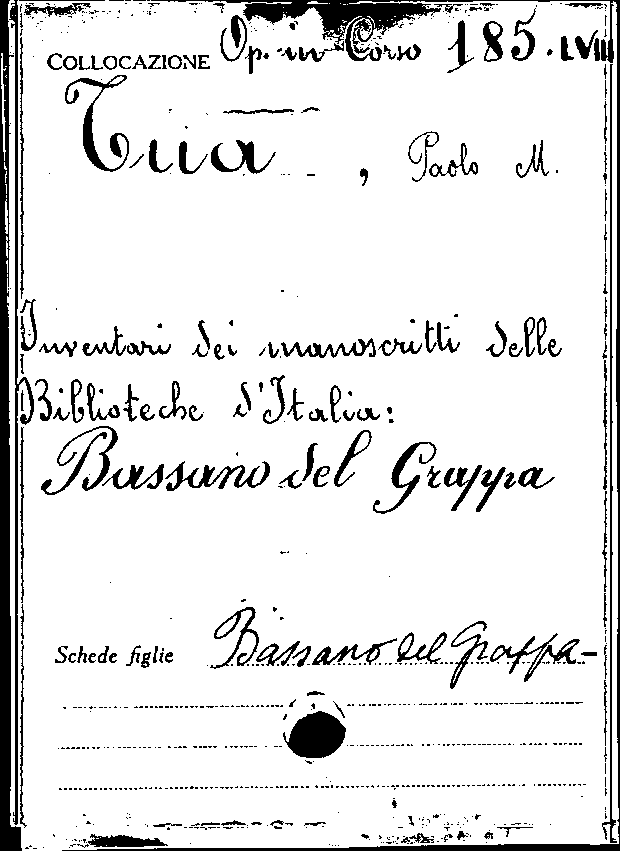 COLLOCAZIONE Op. in Corso 185. LVIII
Tua, Paolo M.
Inventari dei manoscritti delle
Biblioteche d'Italia:
Bassano del Grappa
Schede figlie Bassano del Grappa-